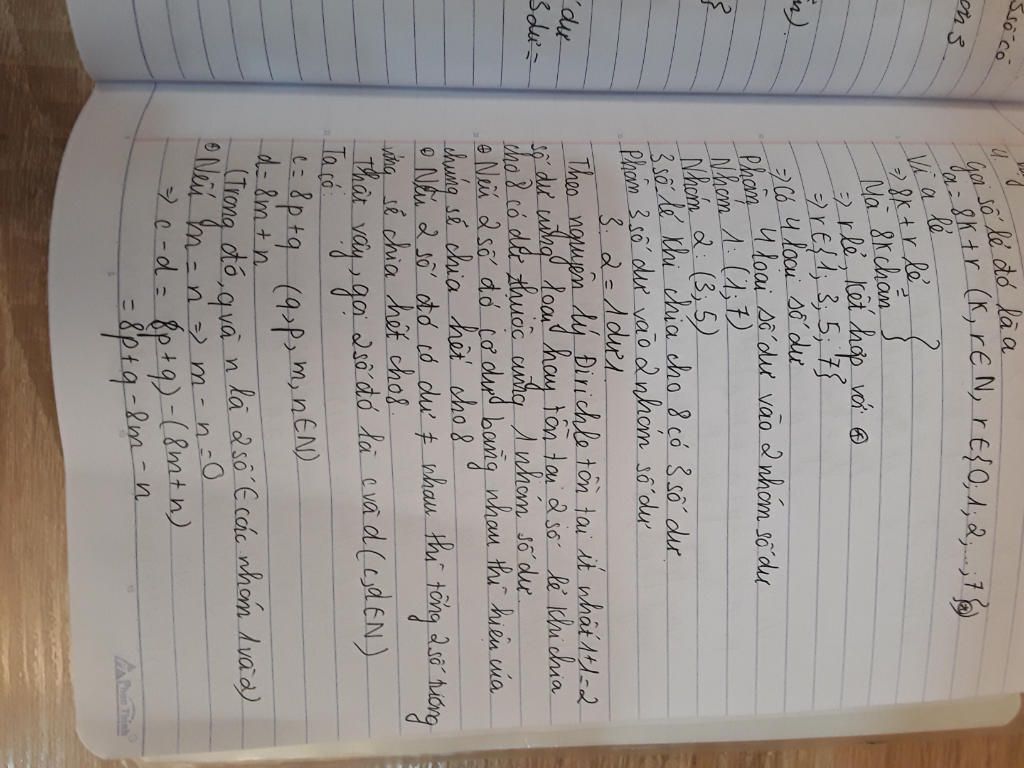 số dư
3 dư =
ên).
}
5 số có
ơn 3
Vậy
4.
Gọi số lẻ đó là a
Ta = 8k + r (K, r ∈ N, r ∈ {0, 1, 2, ..., 7})
Vì a lẻ
=> 8k + r lẻ
Mà 8k chẵn
=> r lẻ, kết hợp với
=> r ∈ {1, 3, 5, 7}
=> Có 4 loại số dư
Phân 4 loại số dư vào 2 nhóm số dư
Nhóm 1: (1, 7)
Nhóm 2: (3, 5)
3 số lẻ khi chia cho 8 có 3 số dư
Phân 3 số dư vào 2 nhóm số dư
3 : 2 = 1 dư 1
Theo nguyên lý Đirichle tồn tại ít nhất 1+1=2
số dư cùng loại hay tồn tại 2 số lẻ khi chia
cho 8 có dư thuộc cùng 1 nhóm số dư
Nếu 2 số đó có dư bằng nhau thì hiệu của
chúng sẽ chia hết cho 8
Nếu 2 số đó có dư ≠ nhau thì tổng 2 số tương
ứng sẽ chia hết cho 8
Thật vậy, gọi 2 số đó là c và d (c, d ∈ N)
Ta có:
c = 8p + q (q, p, m, n ∈ N)
d = 8m + n
(Trong đó, q và n là 2 số ∈ các nhóm 1 và 2)
Nếu m = n => m - n = 0
=> c - d = (8p + q) - (8m + n)
= 8p + q - 8m - n